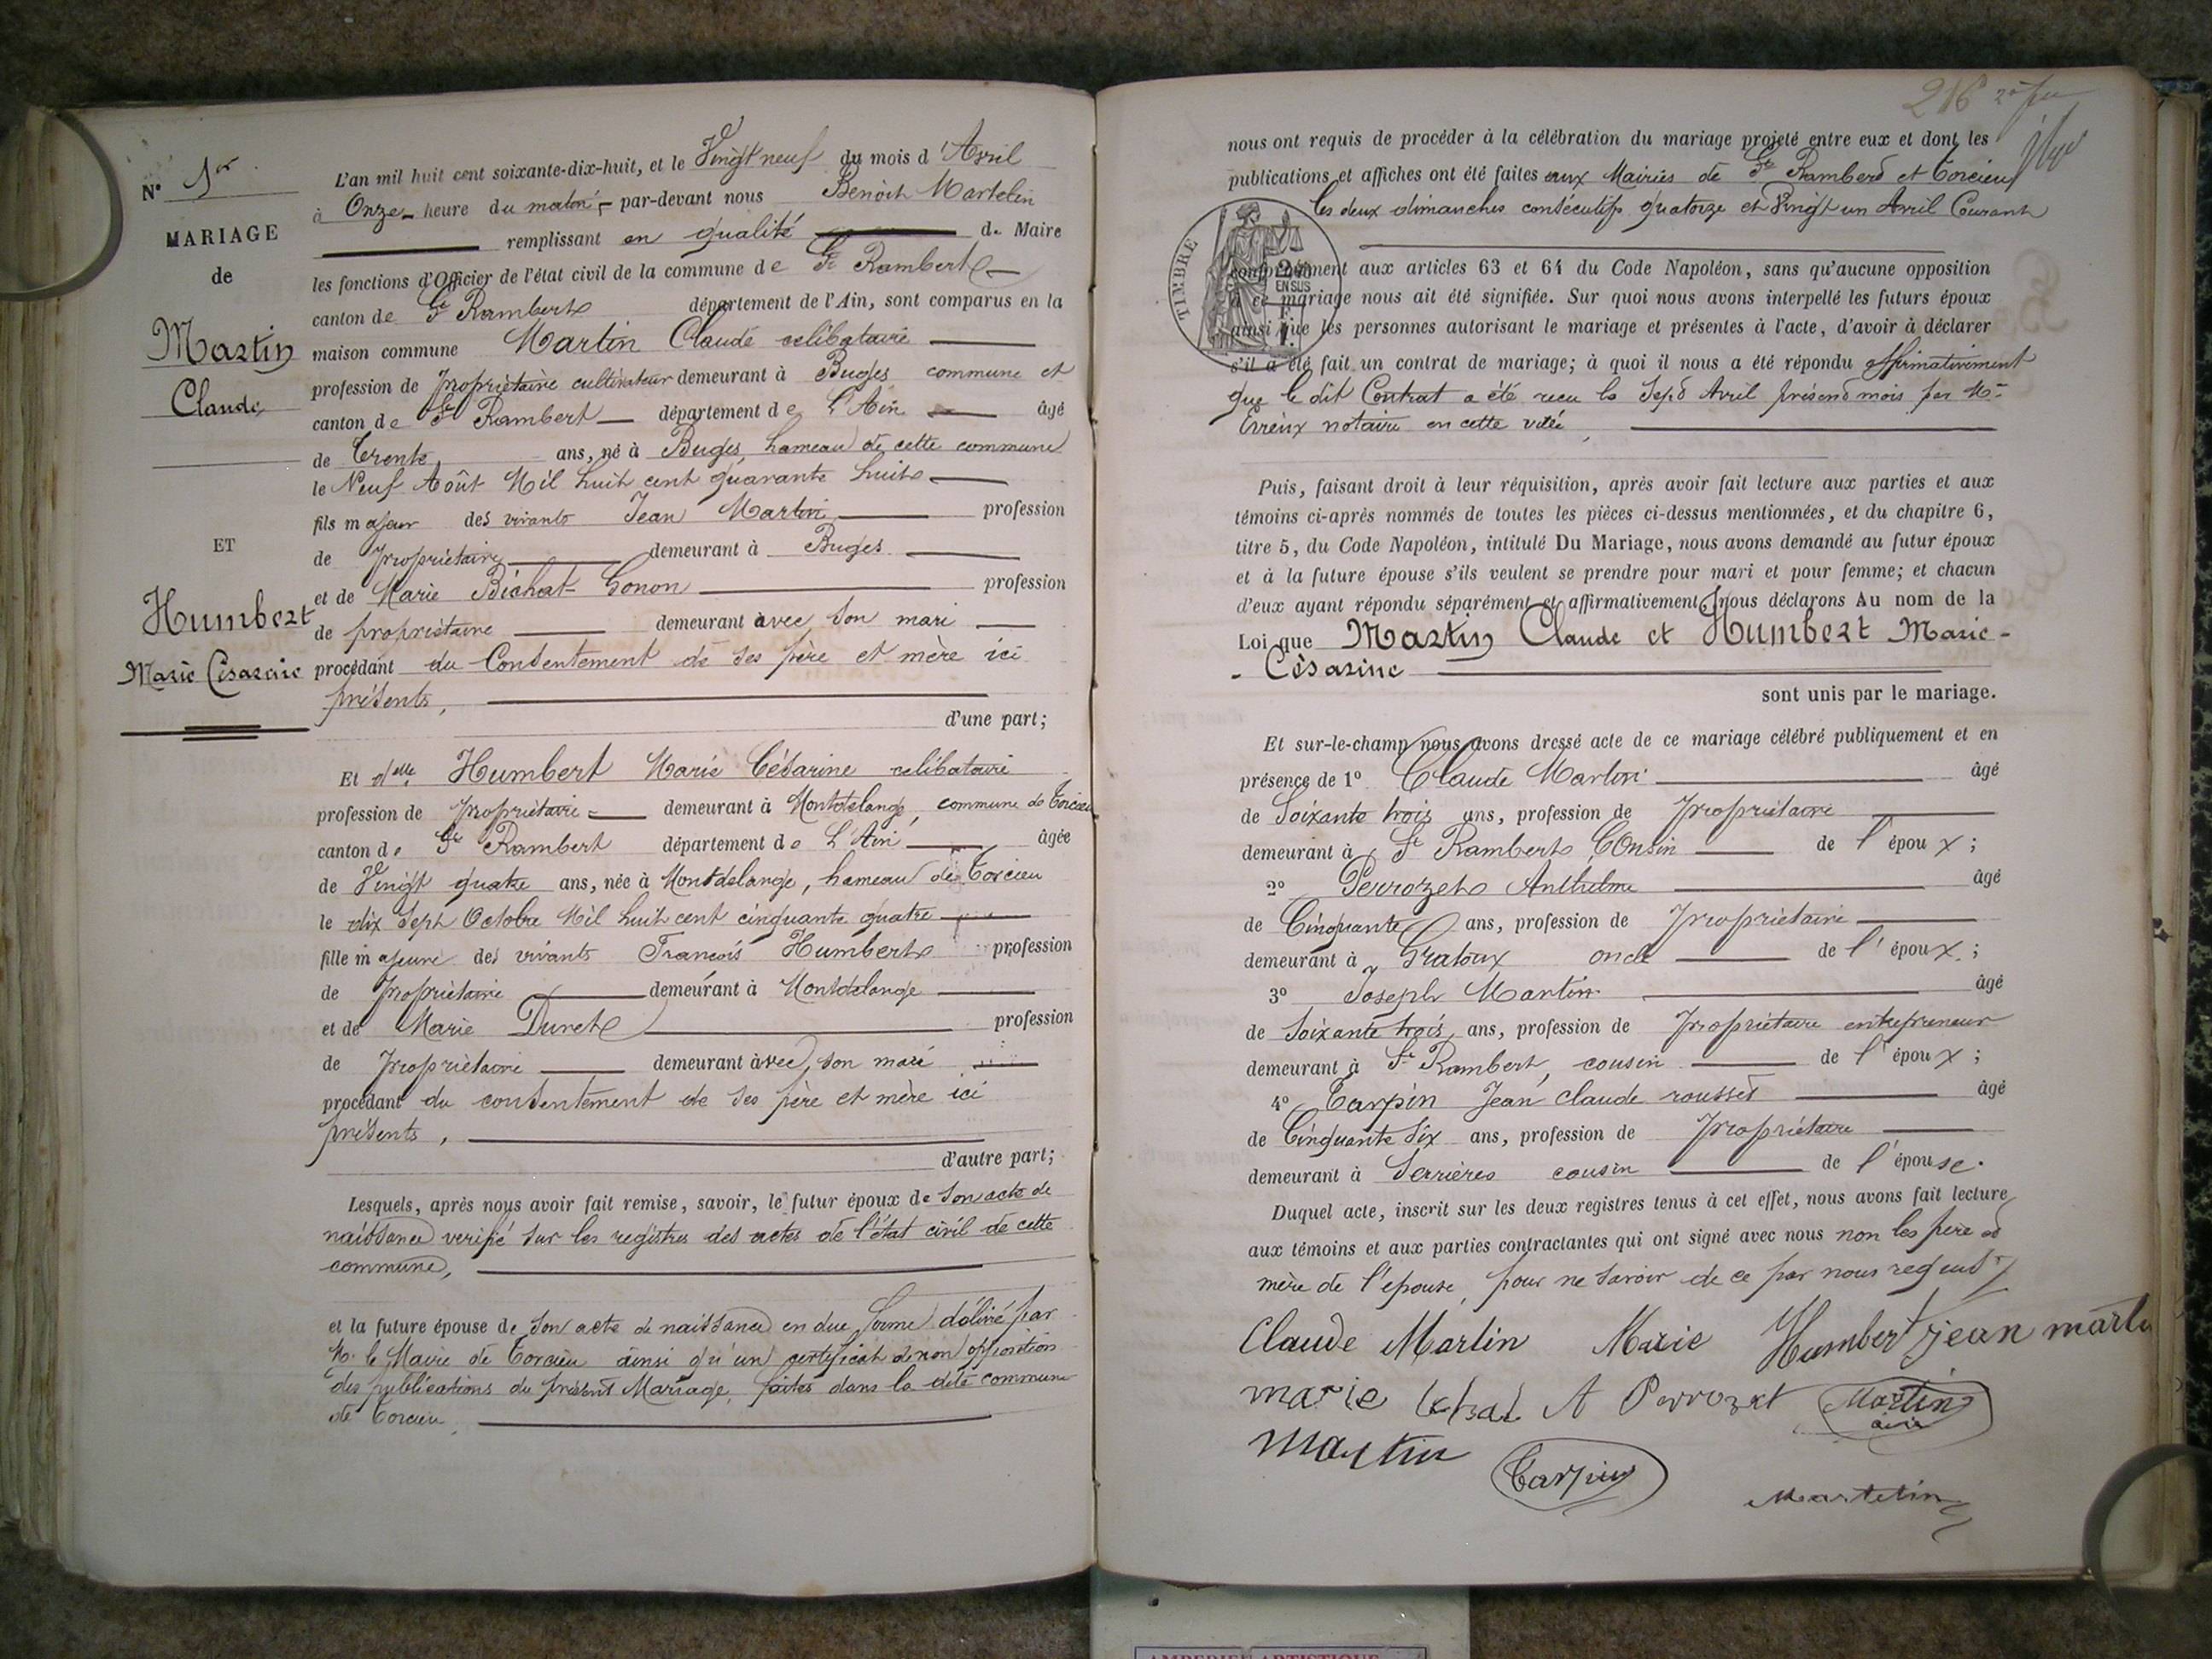 N° 15
MARIAGE
de
Martin
Claude
ET
Humbert
Marie Césarine
L'an mil huit cent soixante-dix-huit, et le Vingt neuf du mois d'Avril
à Onze heure du matin, par-devant nous Benoit Martelin
remplissant en qualité de Maire
les fonctions d'Officier de l'état civil de la commune de St Rambert
canton de St Rambert département de l'Ain, sont comparus en la
maison commune Martin Claude célibataire
profession de propriétaire cultivateur demeurant à Buges commune et
canton de St Rambert département de L'Ain âgé
de Trente ans, né à Buges, hameau de cette commune
le Neuf Août Mil huit cent quarante huit
fils majeur des vivants Jean Martin profession
de propriétaire demeurant à Buges
et de Marie Bichat Gonon profession
de propriétaire demeurant avec son mari
procédant du Consentement de ses père et mère ici
présents,
d'une part;
Et delle Humbert Marie Césarine célibataire
profession de propriétaire demeurant à Montdelange, commune de Torcieu
canton de St Rambert département de L'Ain âgée
de Vingt quatre ans, née à Montdelange, hameau de Torcieu
le dix Sept Octobre Mil huit cent cinquante quatre
fille majeure des vivants François Humbert profession
de propriétaire demeurant à Montdelange
et de Marie Duret profession
de propriétaire demeurant avec son mari
procédant du consentement de ses père et mère ici
présents,
d'autre part;
Lesquels, après nous avoir fait remise, savoir, le futur époux de son acte de
naissance verifié sur les registres des actes de l'état civil de cette
commune,
et la future épouse de son acte de naissance en due forme délivré par
Mr le Maire de Torcieu ainsi qu'un certificat de non opposition
des publications du présent Mariage, faites dans la dite commune
de Torcieu,
216
nous ont requis de procéder à la célébration du mariage projeté entre eux et dont les
publications et affiches ont été faites aux Mairies de St Rambert et Torcieu
les deux dimanches consécutifs quatorze et Vingt un Avril Courant
TIMBRE
EN SUS
conformément aux articles 63 et 64 du Code Napoléon, sans qu'aucune opposition
à ce mariage nous ait été signifiée. Sur quoi nous avons interpellé les futurs époux
ainsi que les personnes autorisant le mariage et présentes à l'acte, d'avoir à déclarer
s'il a été fait un contrat de mariage; à quoi il nous a été répondu affirmativement
que le dit Contrat a été reçu le Sept Avril présent mois par Me
notaire en cette ville,
Puis, faisant droit à leur réquisition, après avoir fait lecture aux parties et aux
témoins ci-après nommés de toutes les pièces ci-dessus mentionnées, et du chapitre 6,
titre 5, du Code Napoléon, intitulé Du Mariage, nous avons demandé au futur époux
et à la future épouse s'ils veulent se prendre pour mari et pour femme; et chacun
d'eux ayant répondu séparément et affirmativement, nous déclarons Au nom de la
Loi que Martin Claude et Humbert Marie-
- Césarine
sont unis par le mariage.
Et sur-le-champ nous avons dressé acte de ce mariage célébré publiquement et en
présence de 1° Claude Martin âgé
de Soixante trois ans, profession de propriétaire
demeurant à St Rambert, Cousin de l'époux;
2° Perrozet Anthelme âgé
de Cinquante ans, profession de propriétaire
demeurant à Gratoux oncle de l'époux;
3° Joseph Martin âgé
de Soixante trois ans, profession de propriétaire entrepreneur
demeurant à St Rambert, cousin de l'époux;
4° Tarpin Jean Claude rousset âgé
de Cinquante Six ans, profession de propriétaire
demeurant à Serrières cousin de l'épouse.
Duquel acte, inscrit sur les deux registres tenus à cet effet, nous avons fait lecture
aux témoins et aux parties contractantes qui ont signé avec nous non les père et
mère de l'épouse, pour ne savoir de ce par nous requis
Claude Martin Marie Humbert jean martin
marie A Perrozet Martin
martin Tarpin
Martelin
AMBERIEU ARTISTIQUE